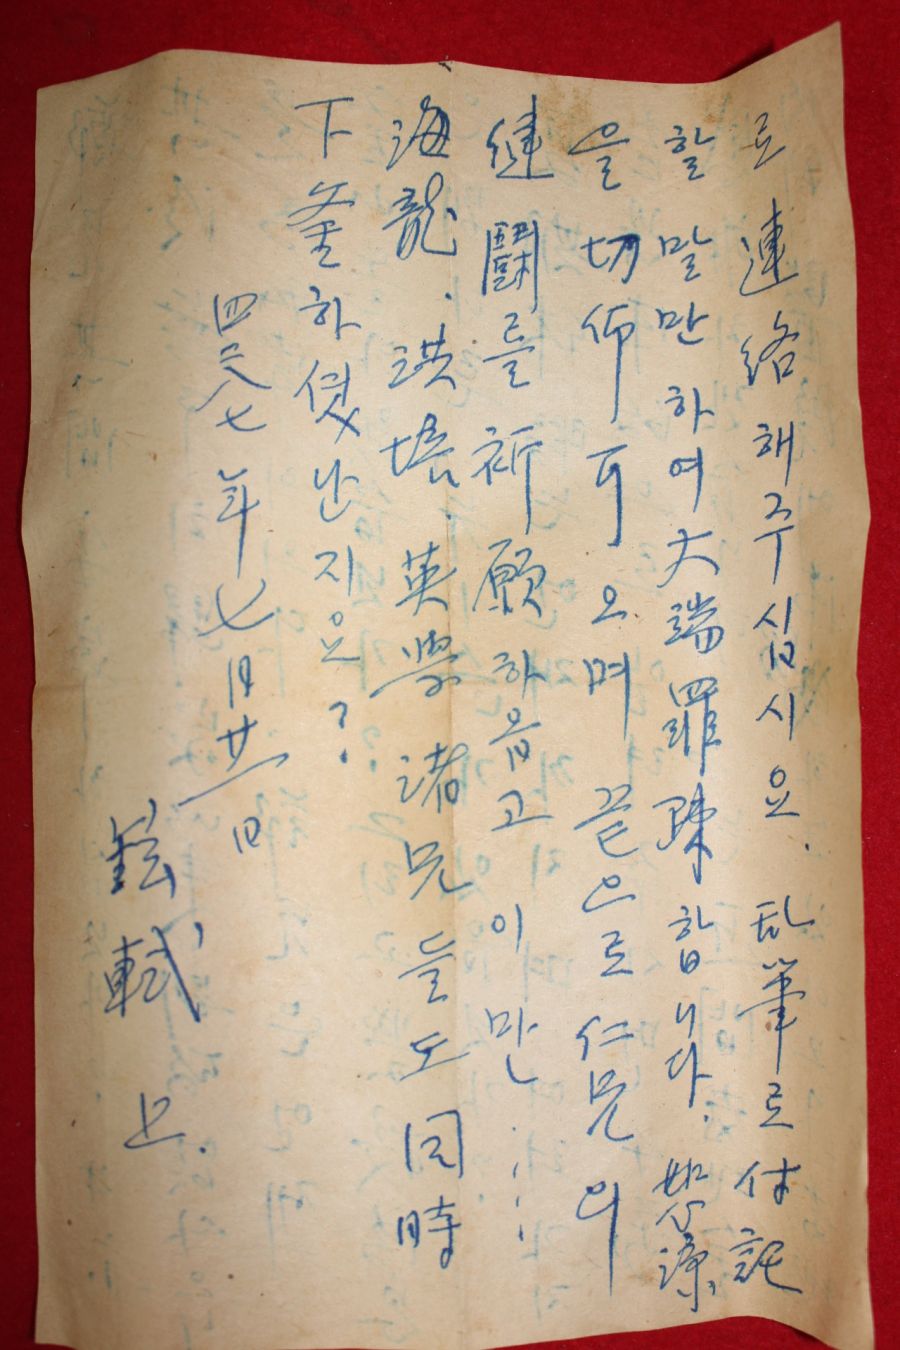 로 連絡해주십시요. 乱筆로 付託
할 말만 하여 大端 罪悚합니다. 恕諒
을 切仰하오며 끝으로 仁兄의
健鬪를 祈願하옵고 이만......
海龍. 洪培. 英學 諸兄들도 同時
下釜하였난지요?
四二八七年 七月 廿一日
鉉軾 上.